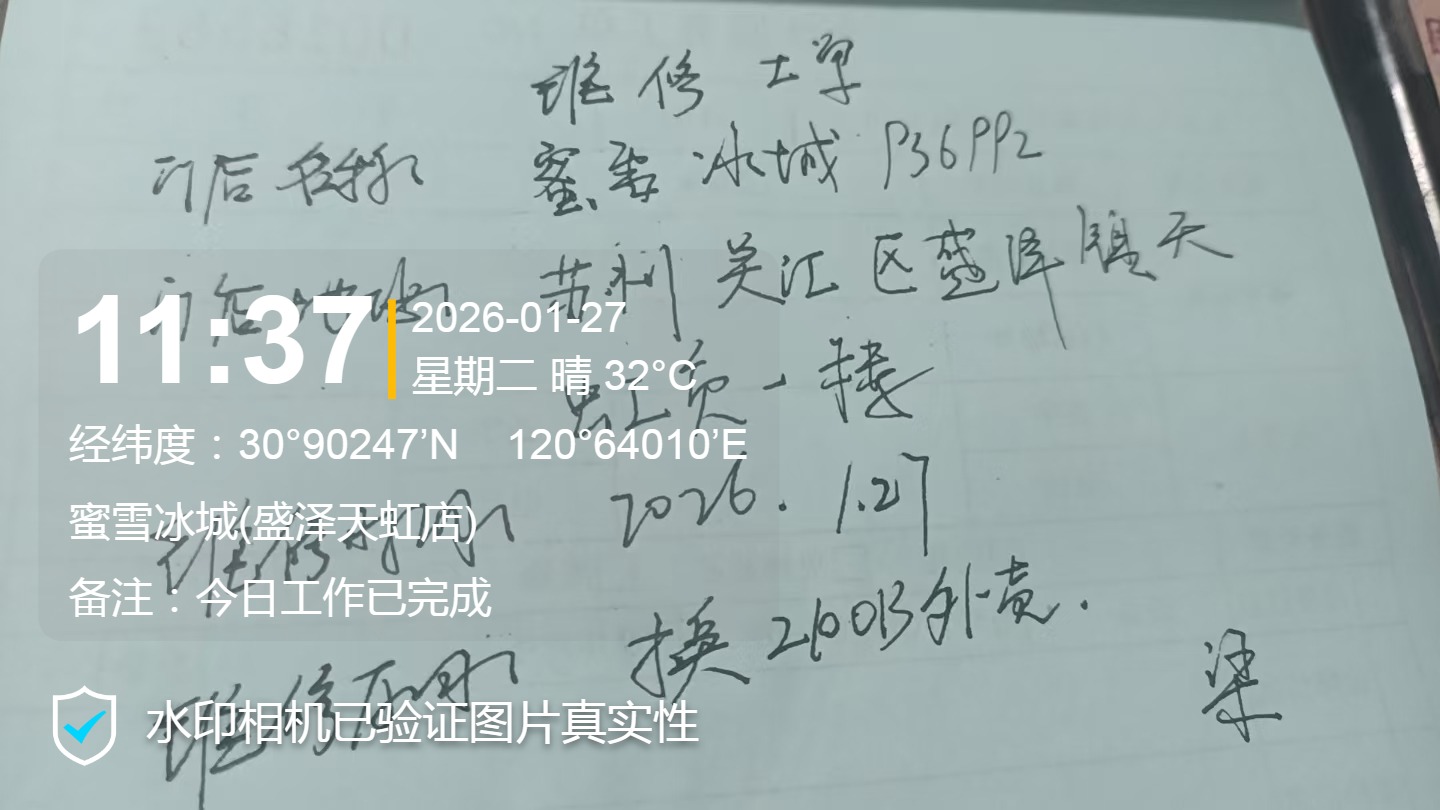 维修工单
门店名称 蜜雪冰城 P36PP2
门店地址 苏州吴江区盛泽镇天
虹上负一楼
11:37
2026-01-27
星期二 晴 32°C
经纬度：30°90247’N 120°64010’E
蜜雪冰城(盛泽天虹店)
备注：今日工作已完成
维修时间 2026.1.27
维修 换2600B外壳.
梁
水印相机已验证图片真实性